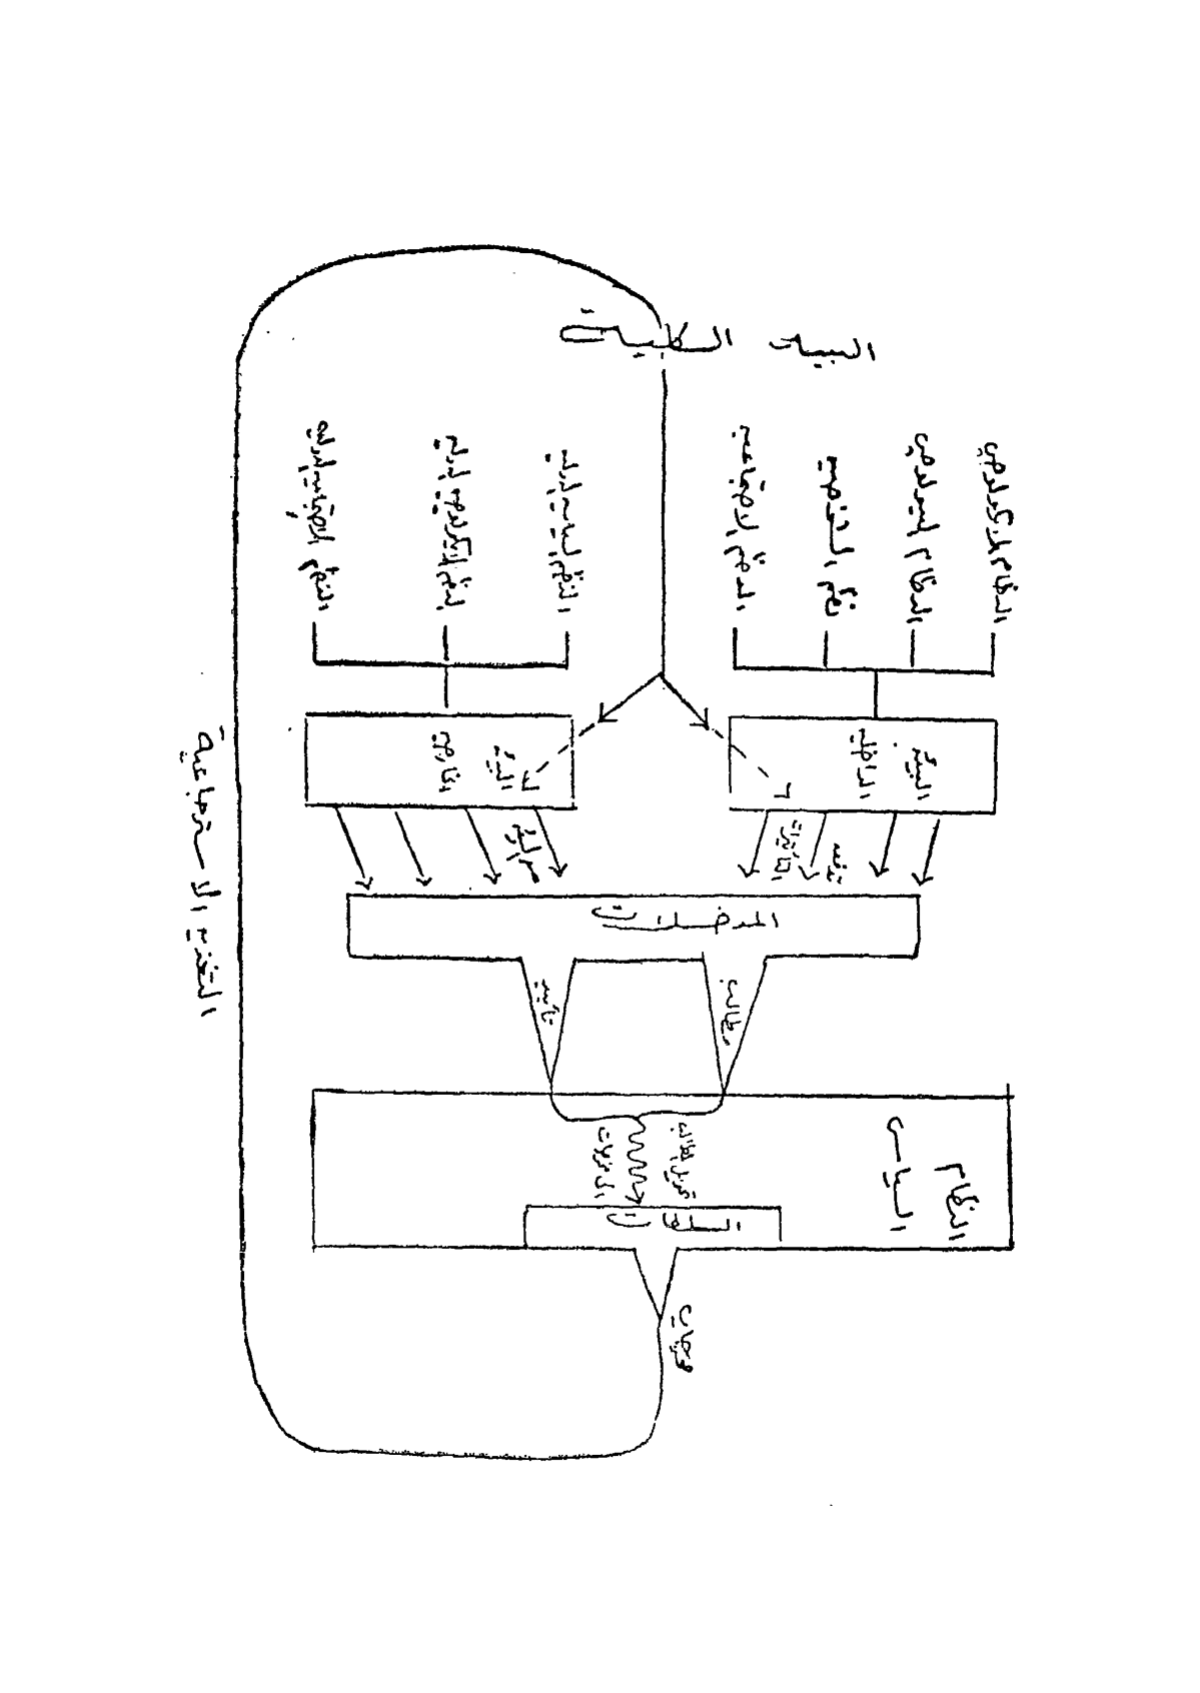 البيئة الكلية
النظام الايكولوجي
النظام البيولوجي
نظم الشخصية
النظم الاجتماعية
النظم السياسية الدولية
النظم الايكولوجية الدولية
النظم الاجتماعية الدولية
البيئة
الداخلية
البيئة
الخارجية
التأثيرات
المدخلات
مطالب
تأييد
النظام
السياسى
تحويل المطالب
الى مخرجات
السلطات
مخرجات
التغذية الاسترجاعية